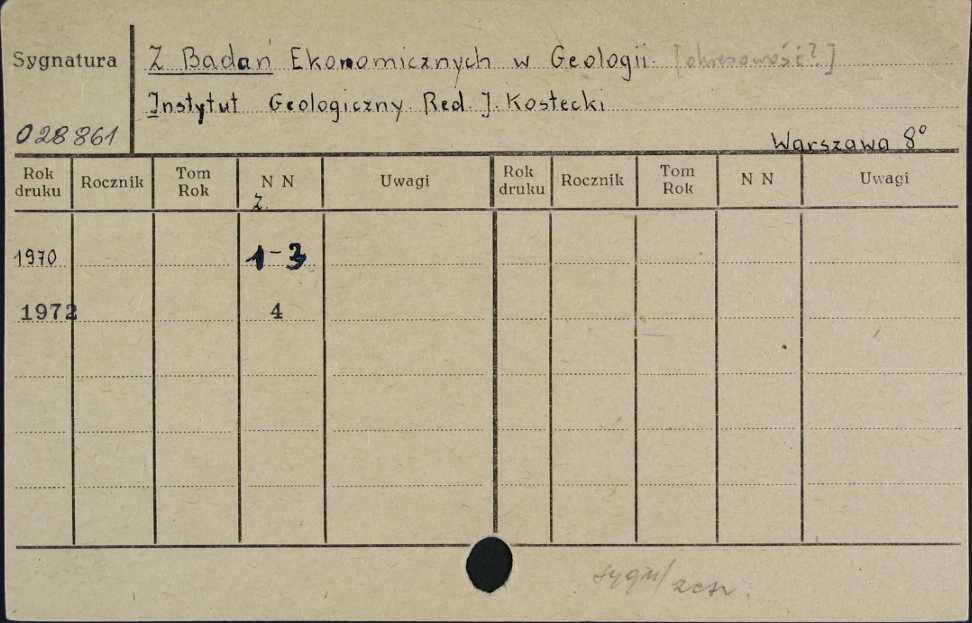 Sygnatura
Z Badań Ekonomicznych w Geologii. [okresowość?]
Instytut Geologiczny. Red. J. Kostecki
028861
Warszawa 8°
Rok druku Rocznik Tom Rok N N Uwagi Rok druku Rocznik Tom Rok N N Uwagi
Z.
1970 1-3
1972 4
sygn/ zesz.